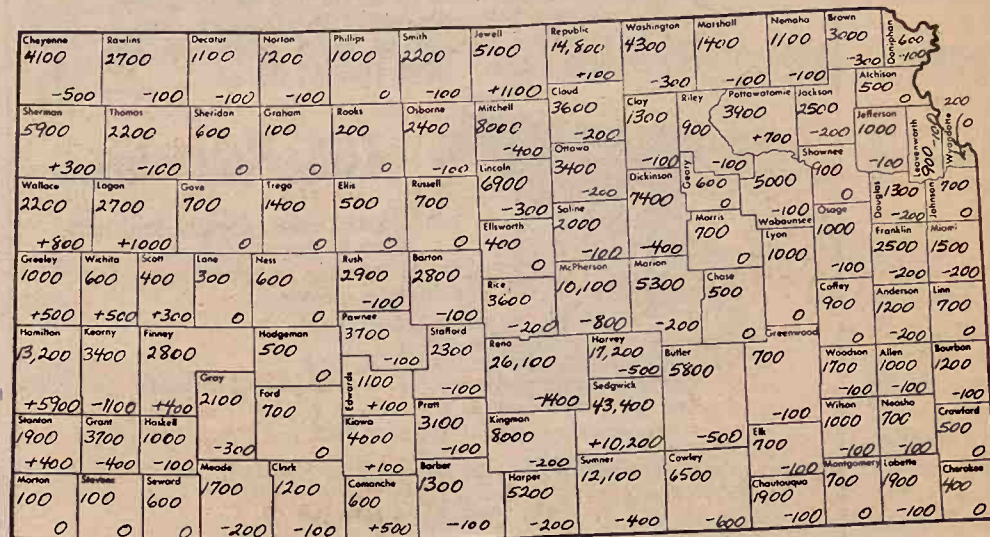 Cheyenne
4100
-500
Rawlins
2700
-100
Decatur
1100
-100
Norton
1200
-100
Phillips
1000
0
Smith
2200
-100
Jewell
5100
+1100
Republic
14,800
+100
Washington
4300
-300
Marshall
1400
-100
Nemaha
1100
-100
Brown
3000
-300
Doniphan
600
-100
Sherman
5900
+300
Thomas
2200
-100
Sheridan
600
0
Graham
100
0
Rooks
200
0
Osborne
2400
-100
Mitchell
8000
-400
Cloud
3600
-200
Clay
1300
-100
Riley
900
-100
Pottawatomie
3900
+700
Jackson
2500
-200
Atchison
500
0
Jefferson
1000
-100
Leavenworth
900
100
Wyandotte
200
0
Wallace
2200
+800
Logan
2700
+1000
Gove
700
0
Trego
1400
0
Ellis
500
0
Russell
700
0
Lincoln
6900
-300
Ottawa
3400
-200
Dickinson
7400
-400
Geary
600
0
Wabaunsee
5000
-100
Shawnee
900
0
Douglas
1300
-200
Johnson
700
0
Ellsworth
400
0
Saline
2000
-100
Morris
700
0
Lyon
1000
0
Osage
1000
-100
Franklin
2500
-200
Miami
1500
-200
Greeley
1000
+500
Wichita
600
+500
Scott
400
+300
Lane
300
0
Ness
600
0
Rush
2900
-100
Barton
2800
-100
Rice
3600
-200
McPherson
10,100
-800
Marion
5300
-200
Chase
500
0
Coffey
900
0
Anderson
1200
-200
Linn
700
0
Hamilton
13,200
+5900
Kearny
3400
-1100
Finney
2800
+400
Hodgeman
500
0
Pawnee
3700
-100
Stafford
2300
-100
Reno
26,100
-1400
Harvey
17,200
-500
Butler
5800
-500
Greenwood
700
-100
Woodson
1700
-100
Allen
1000
-100
Bourbon
1200
-100
Gray
2100
-300
Ford
700
0
Edwards
1100
+100
Pratt
3100
-100
Kingman
8000
-200
Sedgwick
43,400
+10,200
Elk
700
-100
Wilson
1000
-100
Neosho
700
-100
Crawford
500
0
Stanton
1900
+400
Grant
3700
-400
Haskell
1000
-100
Kiowa
4000
+100
Morton
100
0
Stevens
100
0
Seward
600
0
Meade
1700
-200
Clark
1200
-100
Comanche
600
+500
Barber
1300
-100
Harper
5200
-200
Sumner
12,100
-400
Cowley
6500
-600
Chautauqua
1900
-100
Montgomery
700
0
Labette
1900
-100
Cherokee
400
0